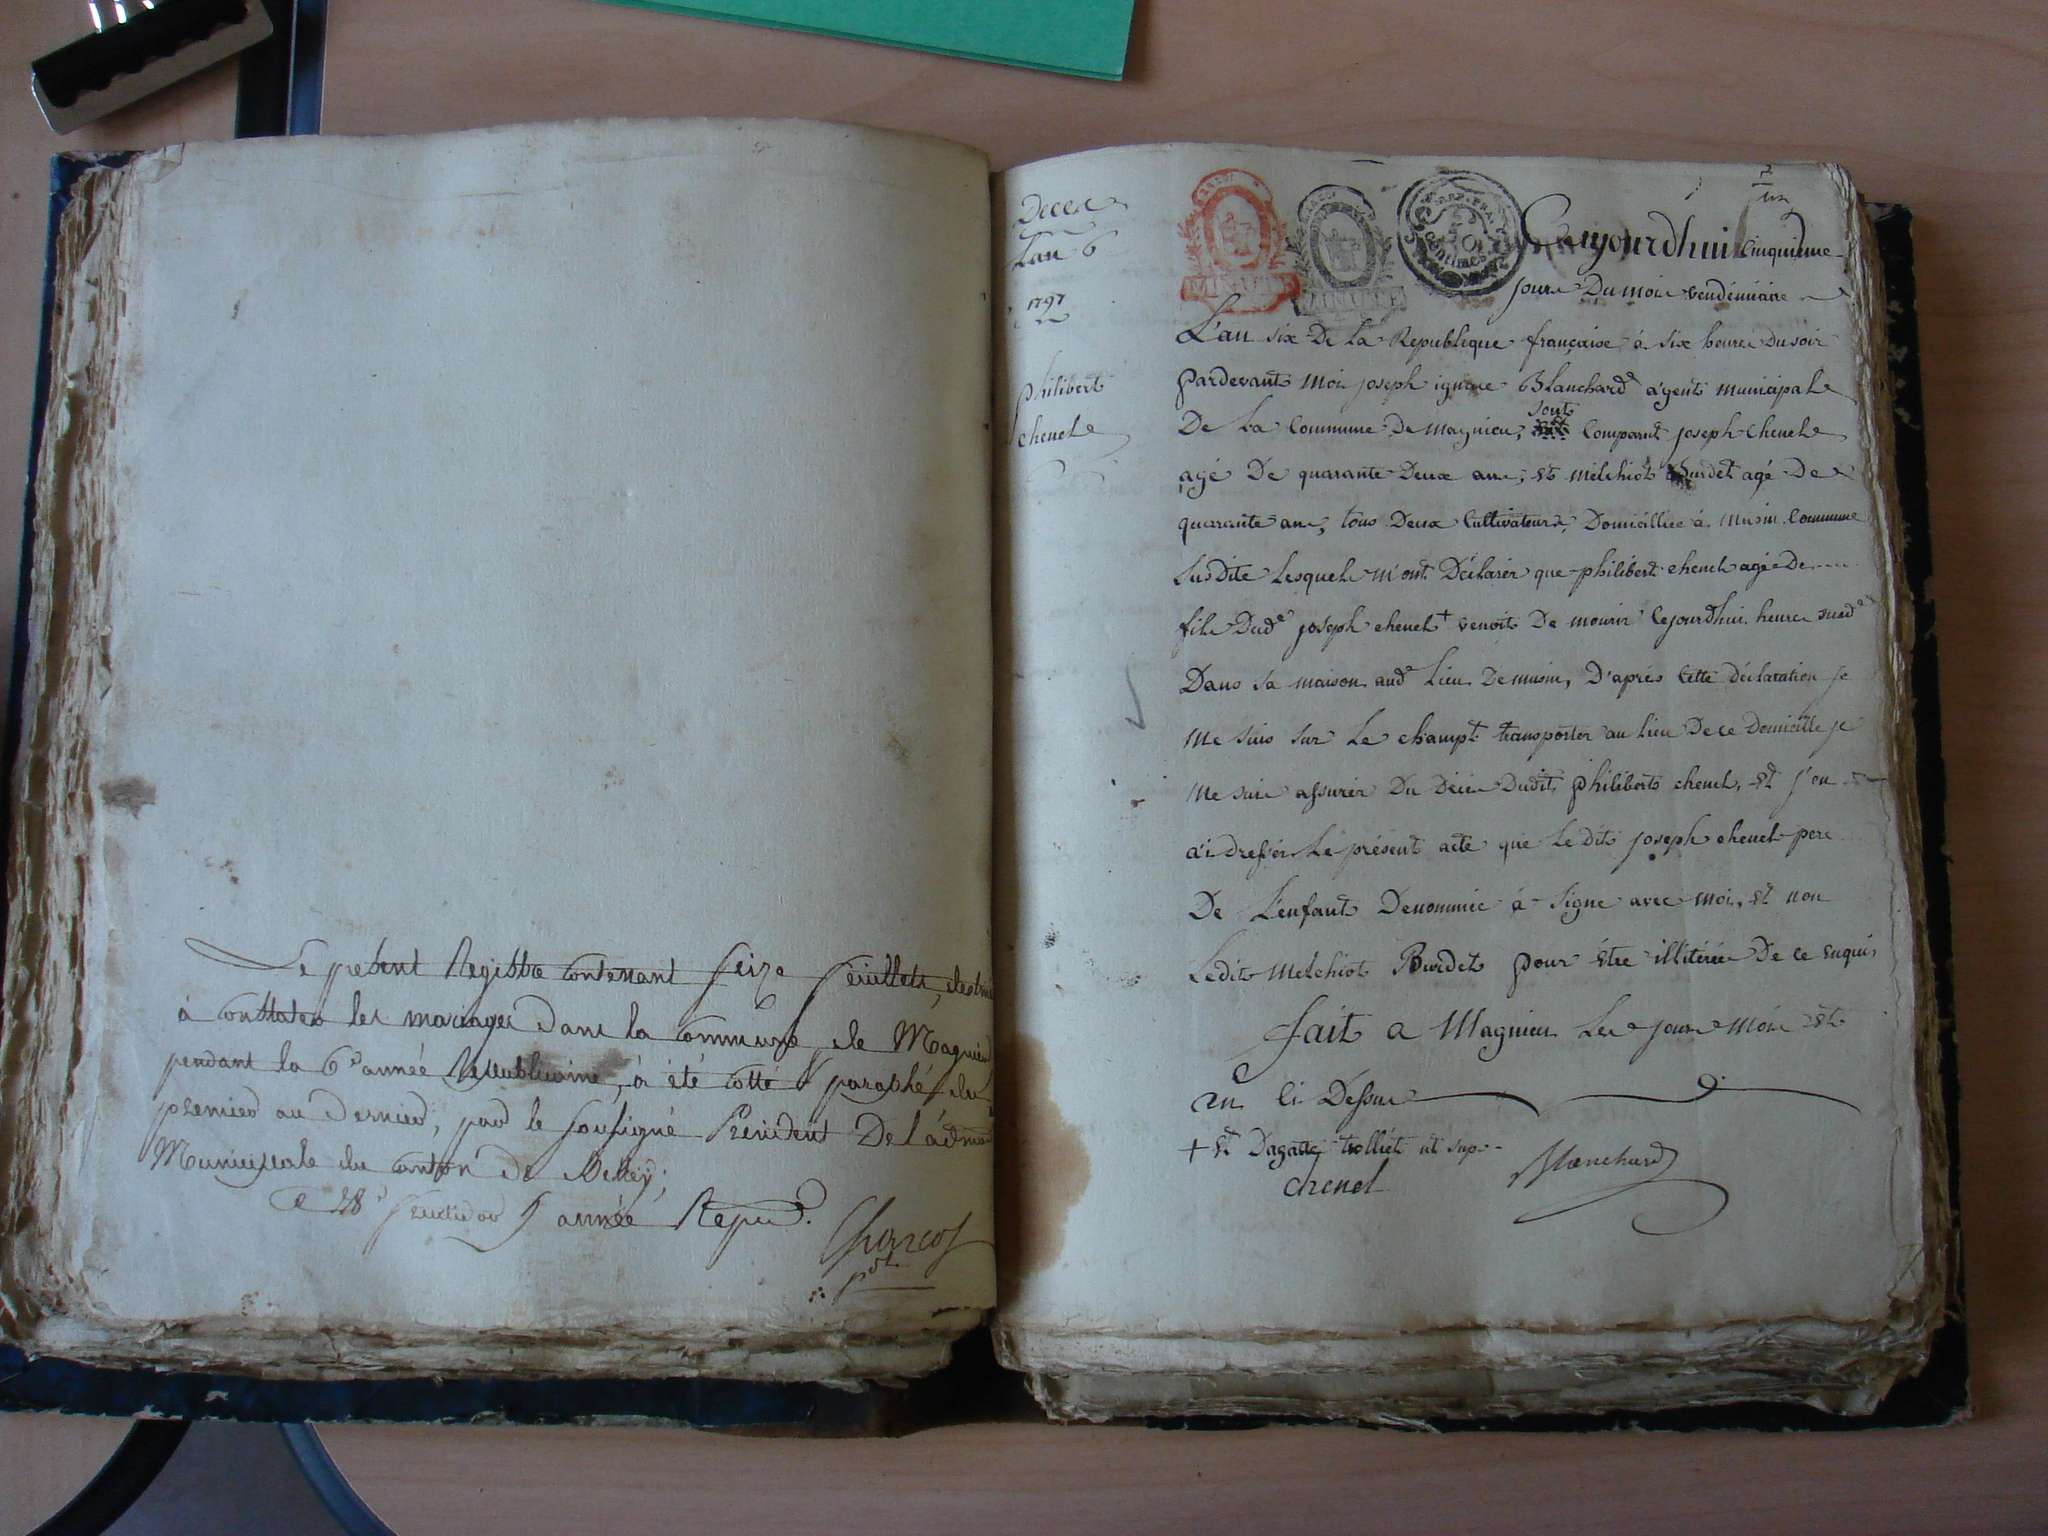 Le present Registre contenant seize feuillets, destiné
à constater les mariages dans la commune de Magnieu
pendant la 6e année Republicaine, à été cotté & paraphé du
premier au dernier, par le soussigné President De l'adm
Municipale du canton de Belley;
Ce 28e fructidor 5 année Repub.
Charcot
pdt
Decex
Lan 6
1797
philibert
chenel
Cejourdhui Cinquieme
jour Du mois vendémiaire
L'an six De La Republique française à six heures Du soir
pardevant Moi joseph ignace Blanchard agent municipal
De La Commune De magnieu, sont Comparut joseph chenel
agé De quarante Deux ans, et melchiot Burdet agé De
quarante ans, tous Deux Cultivateurs, Domiciliés à musin Commune
susdite Lesquels M'ont Déclarér que philibert chenel agé De ....
fils Dude joseph chenel + venoit De mourir Cejourdhui heure susde
Dans sa maison aude Lieu De musin, D'aprés Cette déclaration je
Me suis sur Le champt transporter au lieu De ce Domicille je
Me suis assurér Du Décès Dudit philibert chenel, et j'en
ai dressér Le présent acte que Ledit joseph chenel pere
De L'enfant Denommée à signe avec moi, et non
Ledit Melchiot Burdet pour étre illitérée De ce enquis
fait a Magnieu Les jour Mois et
an Ci Dessus
+ et Dagatte trolliet ut sup.
chenel
Blanchard